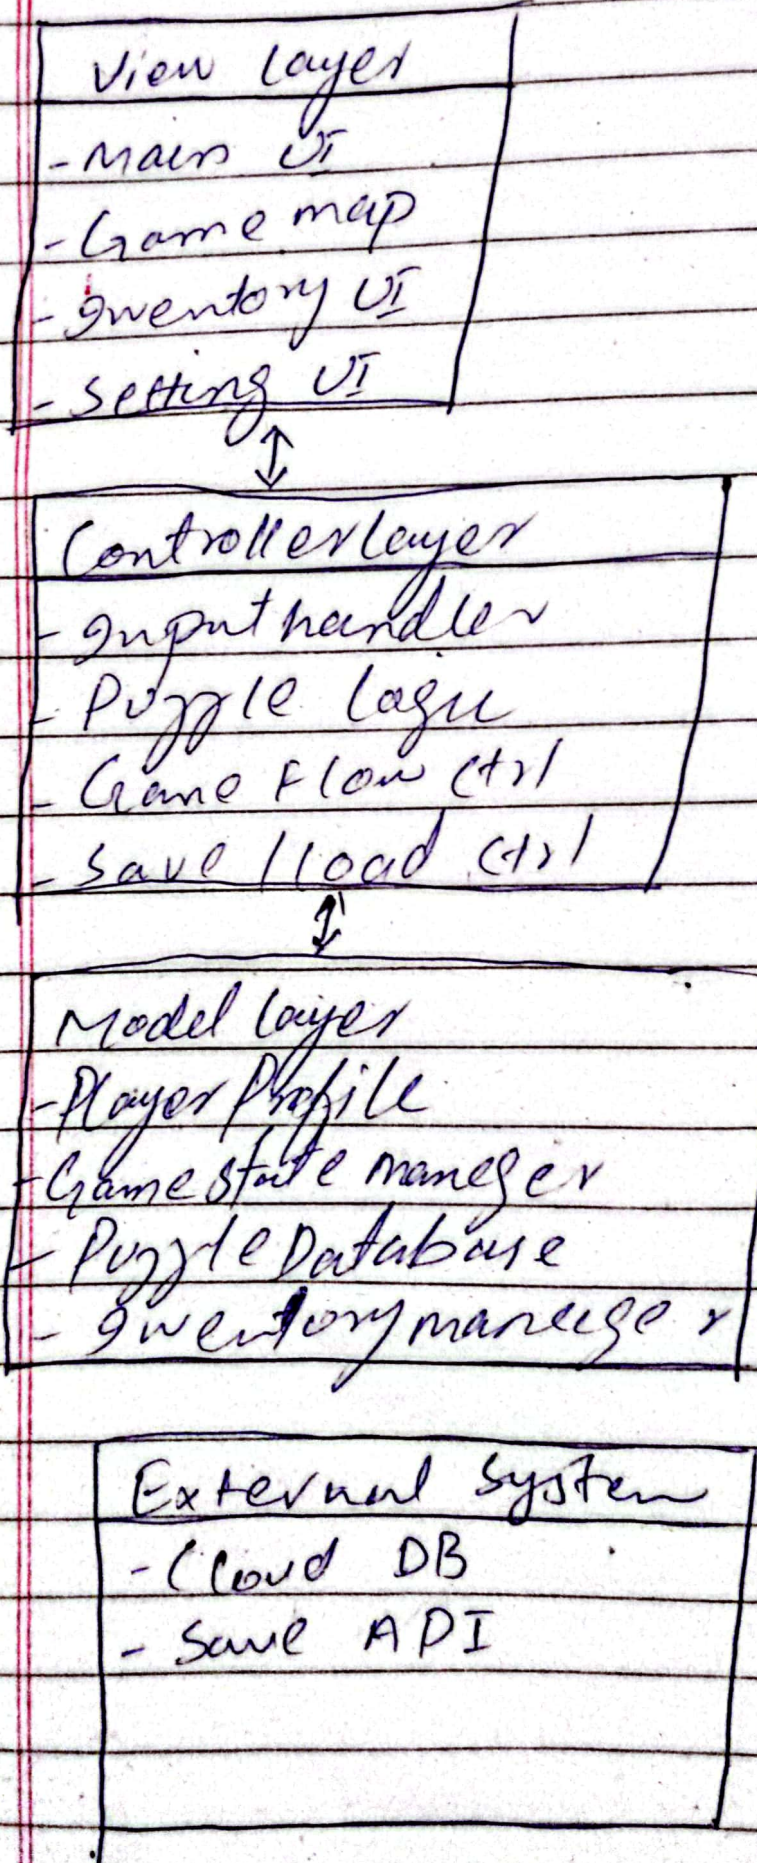 View Layer
- Main UI
- Game map
- Inventory UI
- Setting UI
Controller Layer
- Input handler
- Puzzle Logic
- Game Flow Ctrl
- Save / load Ctrl
Model Layer
- Player Profile
- Game State Maneger
- Puzzle Database
- Inventory manager
External System
- Cloud DB
- Save API